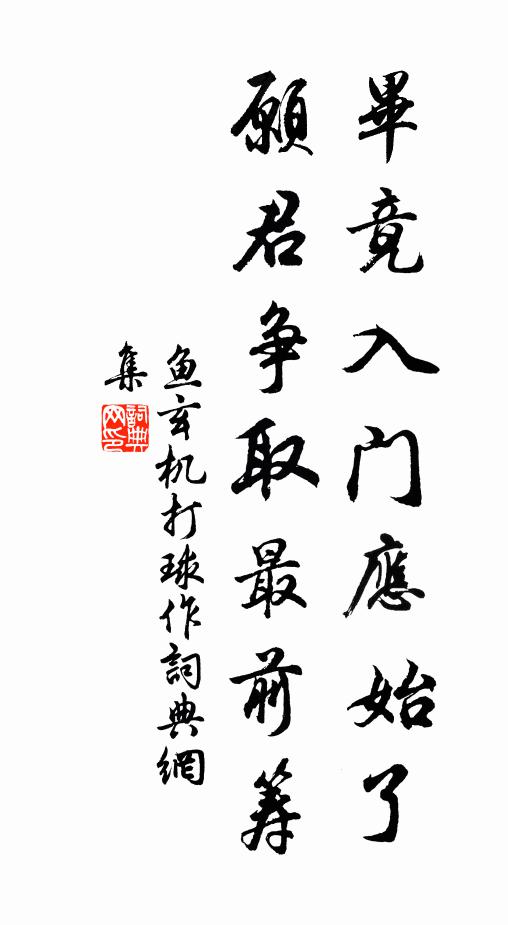 畢竟入门應始了
願君争取最前筹
鱼玄机打球作詞典網
集
詞典
网印